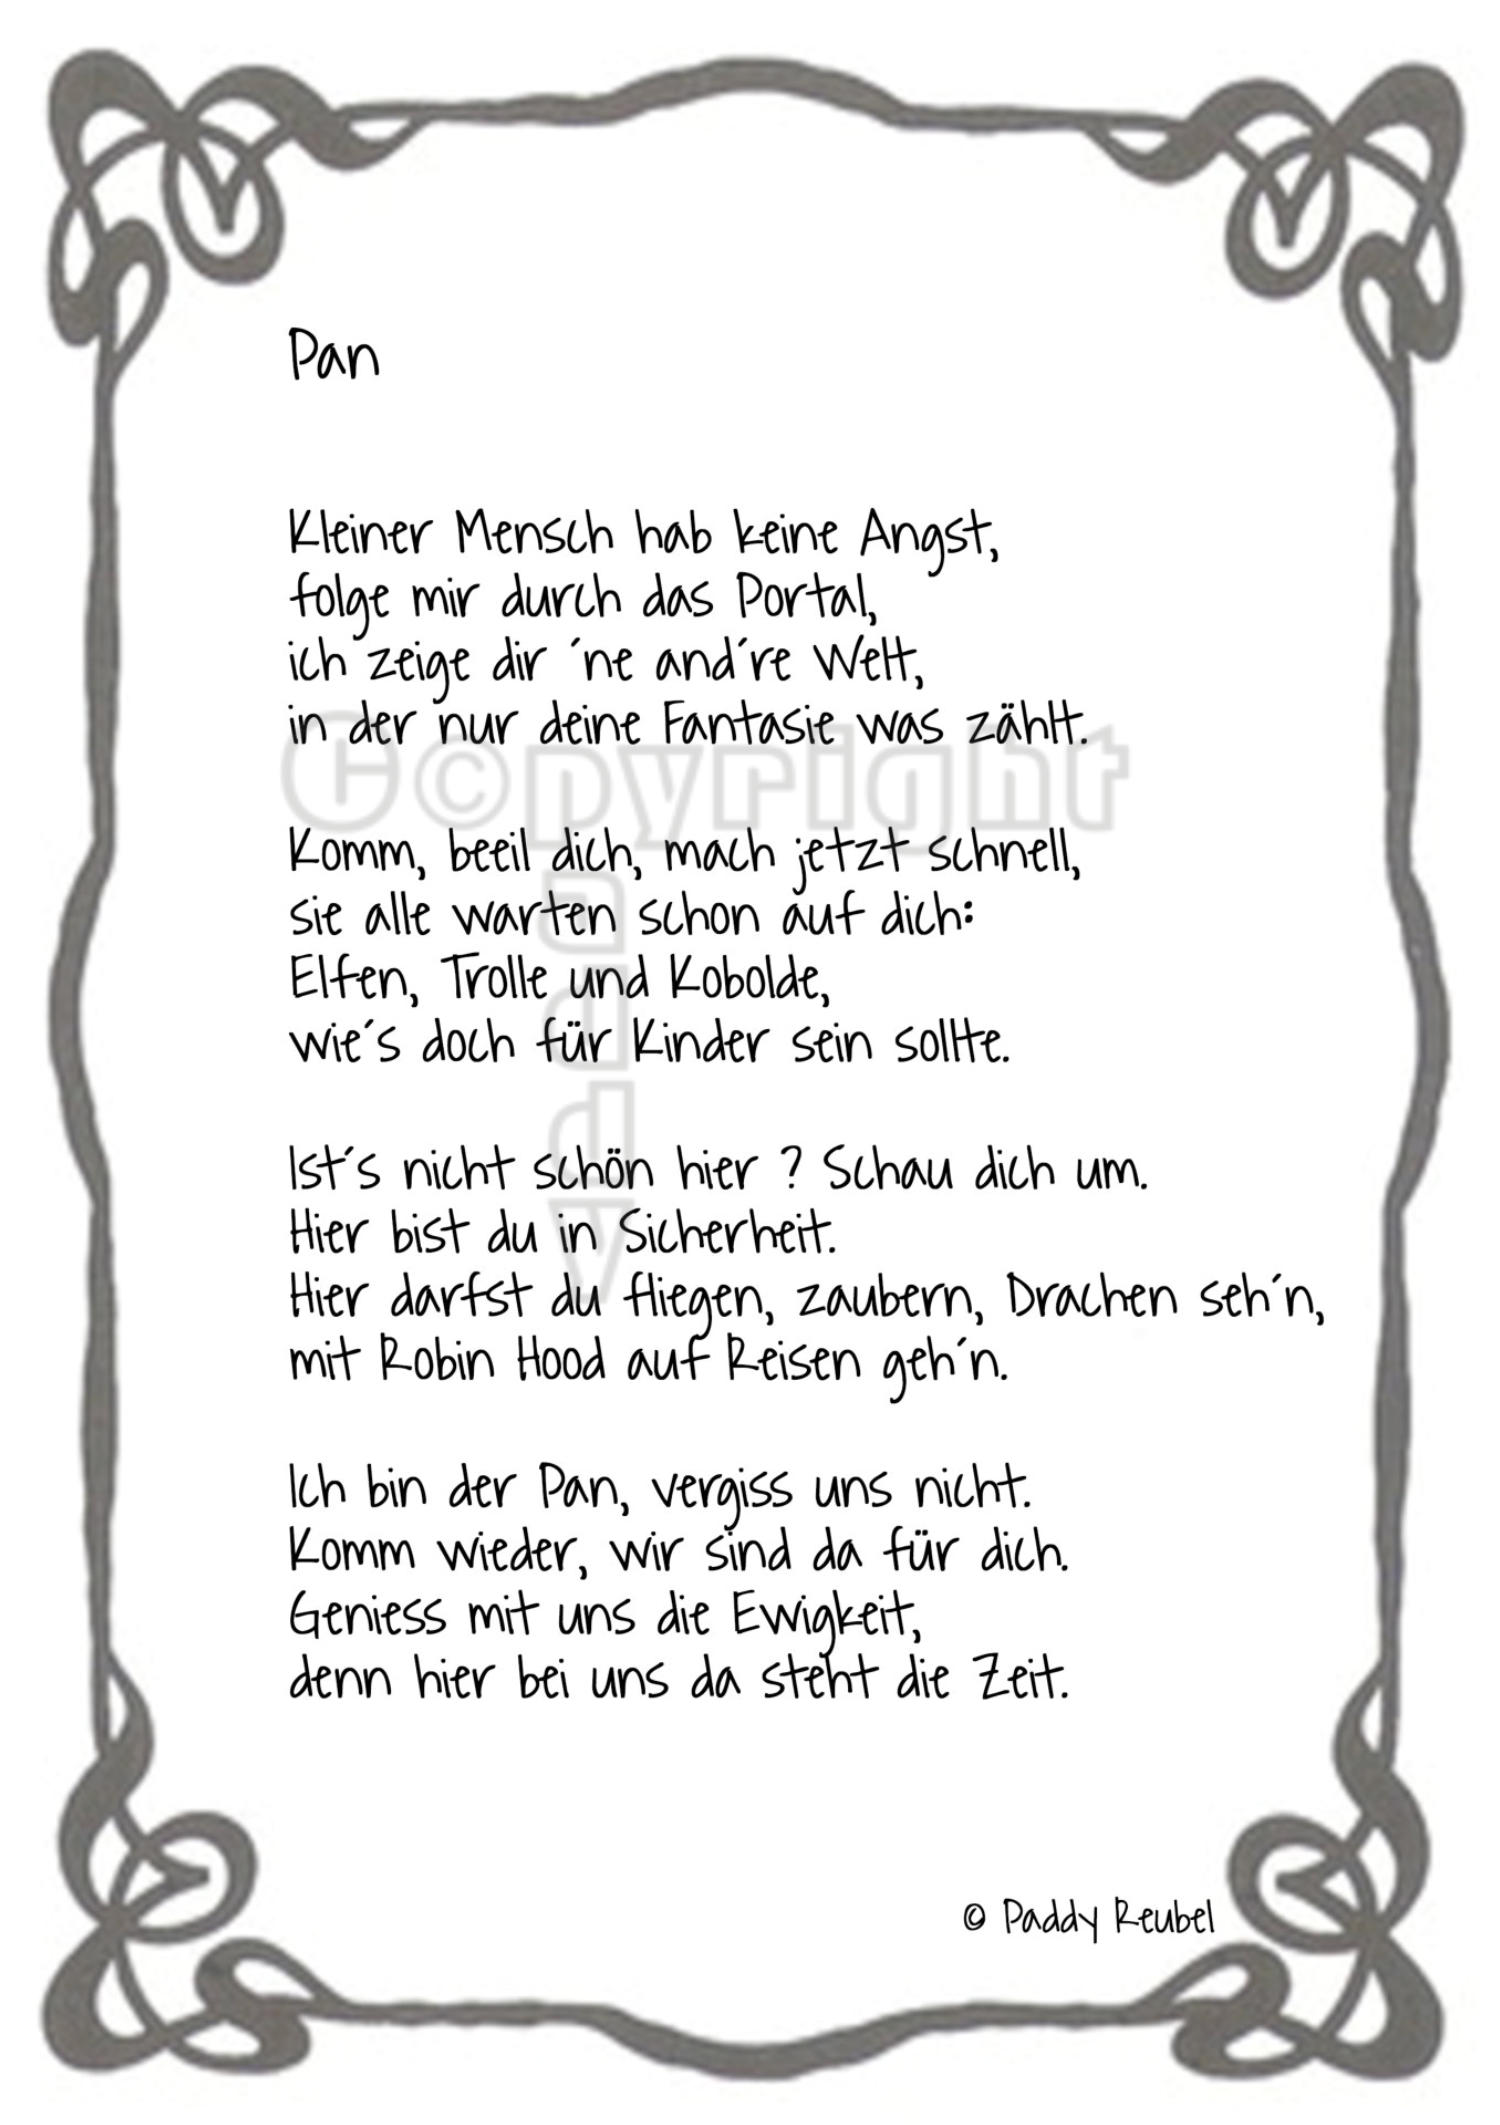 Pan
Kleiner Mensch hab keine Angst,
folge mir durch das Portal,
ich zeige dir ´ne and´re Welt,
in der nur deine Fantasie was zählt.
C©pyright
Paddy
Komm, beeil dich, mach jetzt schnell,
sie alle warten schon auf dich:
Elfen, Trolle und Kobolde,
wie´s doch für Kinder sein sollte.
Ist´s nicht schön hier ? Schau dich um.
Hier bist du in Sicherheit.
Hier darfst du fliegen, zaubern, Drachen seh´n,
mit Robin Hood auf Reisen geh´n.
Ich bin der Pan, vergiss uns nicht.
Komm wieder, wir sind da für dich.
Geniess mit uns die Ewigkeit,
denn hier bei uns da steht die Zeit.
© Paddy Reubel